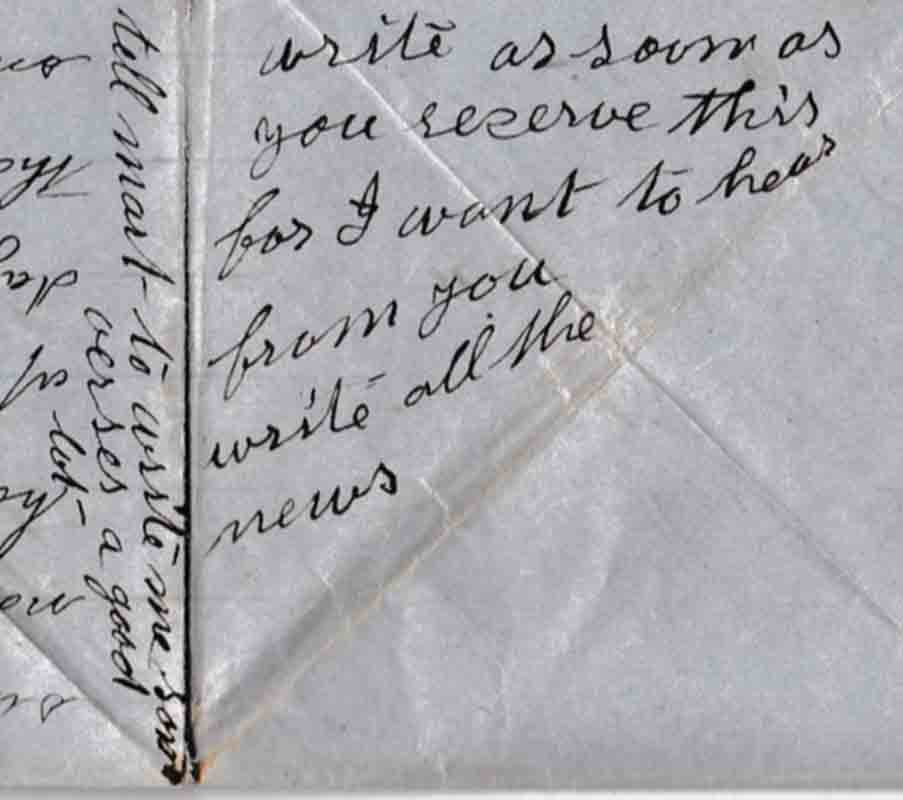 write as soom as
you reserve this
for I want to hear
from you
write all the
news
tell mart to write me som
verses a good
lot